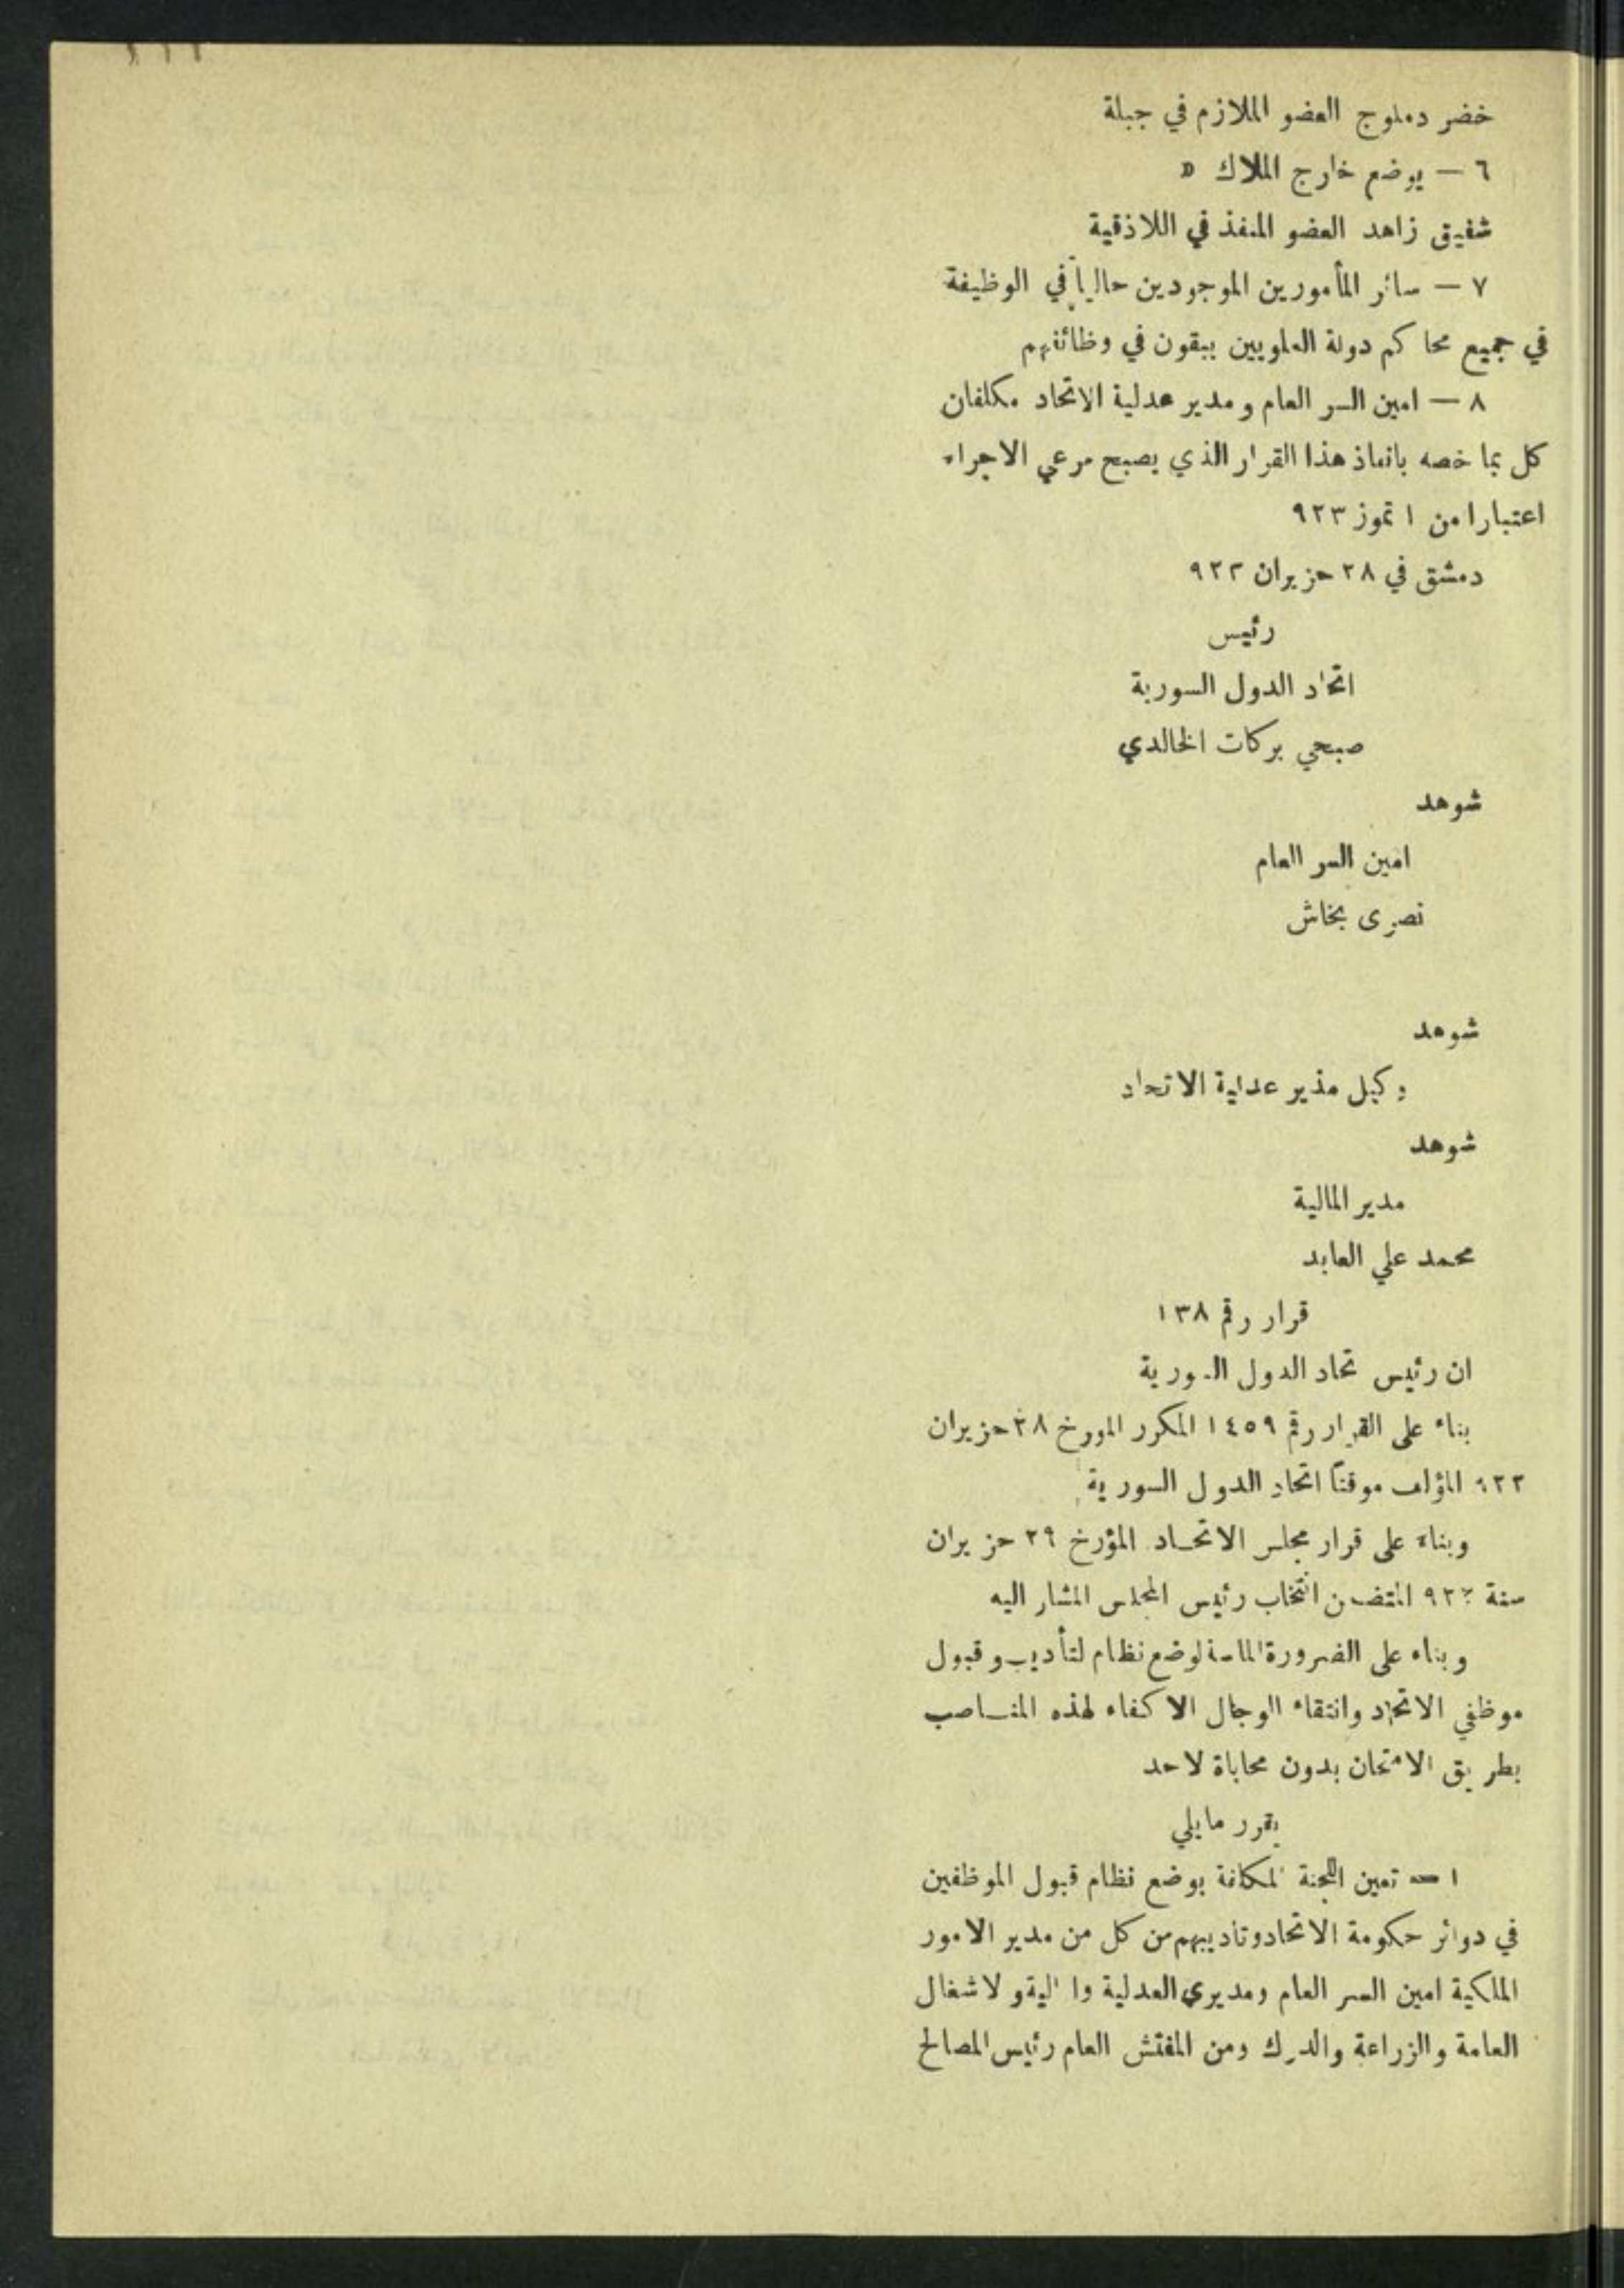 خضر دملوج العضو الملازم في جبلة
٦ — يوضع خارج الملاك «
شفيق زاهد العضو المنفذ في اللاذقية
٧ — سائر المأمورين الموجودين حالياً في الوظيفة
في جميع محاكم دولة العلويين يبقون في وظائفهم
٨ — امين السر العام ومدير عدلية الاتحاد مكلفان
كل بما خصه بانفاذ هذا القرار الذي يصبح مرعي الاجراء
اعتبارا من ١ تموز ٩٢٣
دمشق في ٢٨ حزيران ٩٢٣
رئيس
اتحاد الدول السورية
صبحي بركات الخالدي
شوهد
امين السر العام
نصري بخاش
شوهد
وكيل مذير عدلية الاتحاد
شوهد
مدير المالية
محمد علي العابد
قرار رقم ١٣٨
ان رئيس تحاد الدول السورية
بناء على القرار رقم ١٤٥٩ المكرر المورخ ٢٨ حزيران
٩٢٢ المؤلف موقتاً اتحاد الدول السورية
وبناء على قرار مجلس الاتحاد المؤرخ ٢٩ حزيران
سنة ٩٢٣ المتضمن انتخاب رئيس المجلس المشار اليه
وبناء على الضرورة الماسة لوضع نظام لتأديب وقبول
موظفي الاتحاد وانتقاء الوجال الاكفاء لهذه المناصب
بطريق الامتحان بدون محاباة لاحد
يقرر مايلي
١ — تعين اللجنة المكلفة بوضع نظام قبول الموظفين
في دوائر حكومة الاتحاد وتاديبهم من كل من مدير الامور
الملكية امين السر العام ومديري العدلية والمالية و لاشغال
العامة والزراعة والدرك ومن المفتش العام رئيس المصالح